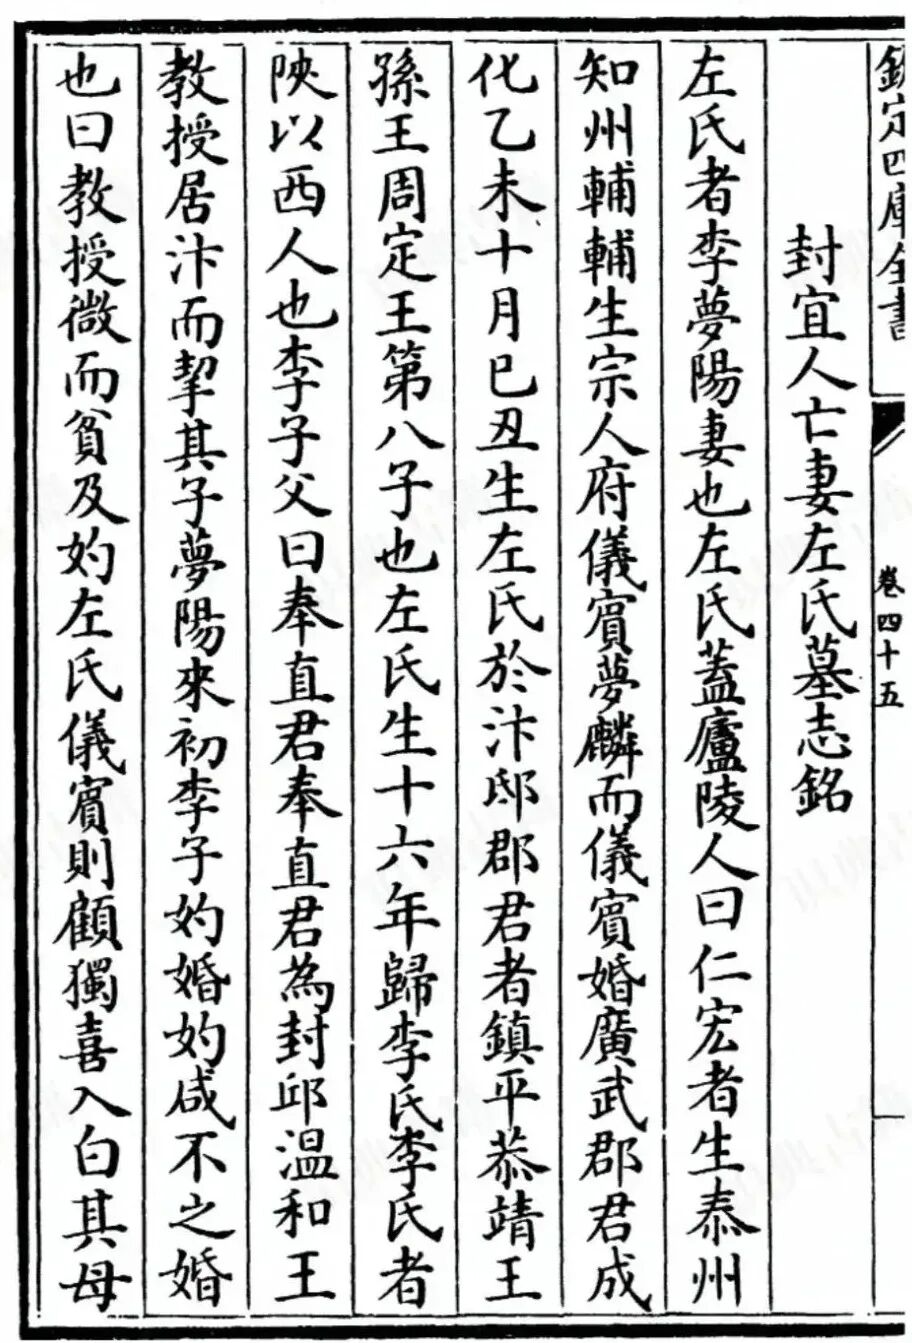 欽定四庫全書
卷四十五
封宜人亡妻左氏墓志銘
左氏者李夢陽妻也左氏蓋廬陵人曰仁宏者生泰州
知州輔輔生宗人府儀賓夢麟而儀賓婚廣武郡君成
化乙未十月巳丑生左氏於汴邸郡君者鎮平恭靖王
孫王周定王第八子也左氏生十六年歸李氏李氏者
陜以西人也李子父曰奉直君奉直君為封邱溫和王
教授居汴而挈其子夢陽來初李子妁婚妁咸不之婚
也曰教授微而貧及妁左氏儀賓則顧獨喜入白其母